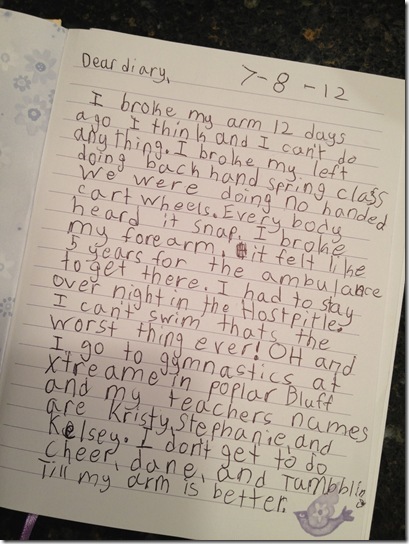 Dear diary,
7-8-12
I broke my arm 12 days
ago I think and I can't do
anything. I broke my left
doing back hand spring class
we were doing no handed
cart wheels. Every body
heard it snap. I broke
my forearm. it felt like
5 years for the ambulance
to get there. I had to stay
over night in the Hostpitle.
I can't swim thats the
worst thing ever! OH and
I go to gymnastics at
xtreame in poplar Bluff
and my teachers names
are Kristy, Stephanie, and
Kelsey. I don't get to do
cheer, dane, and Tumbblin
Till my arm is better.